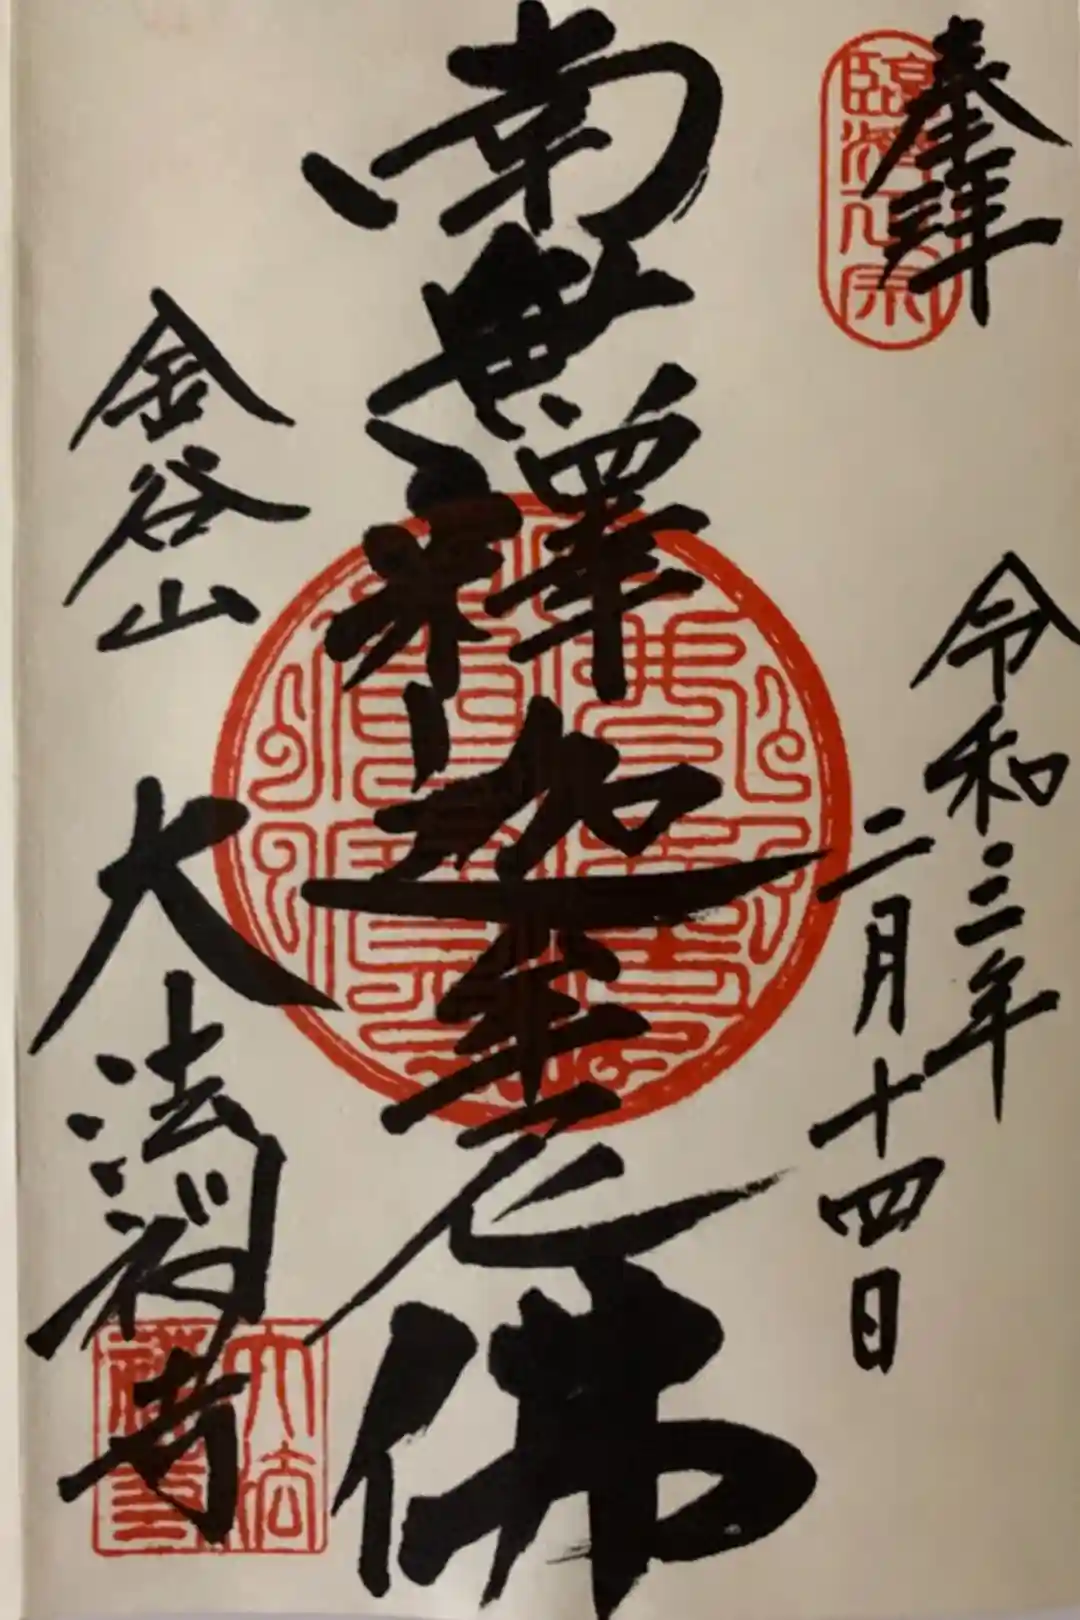 奉拝
臨濟正宗
令和三年
二月十四日
南無釋迦牟尼佛
金谷山
大法禅寺
大法
禅寺